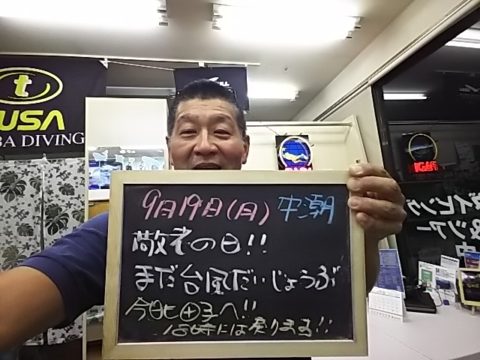 t
TUSA
SCUBA DIVING
9月19日(月) 中潮
敬老の日!!
まだ台風だいじょうぶ
今日も田子へ!!
18時には戻ります!!
ダイビング
ツアー